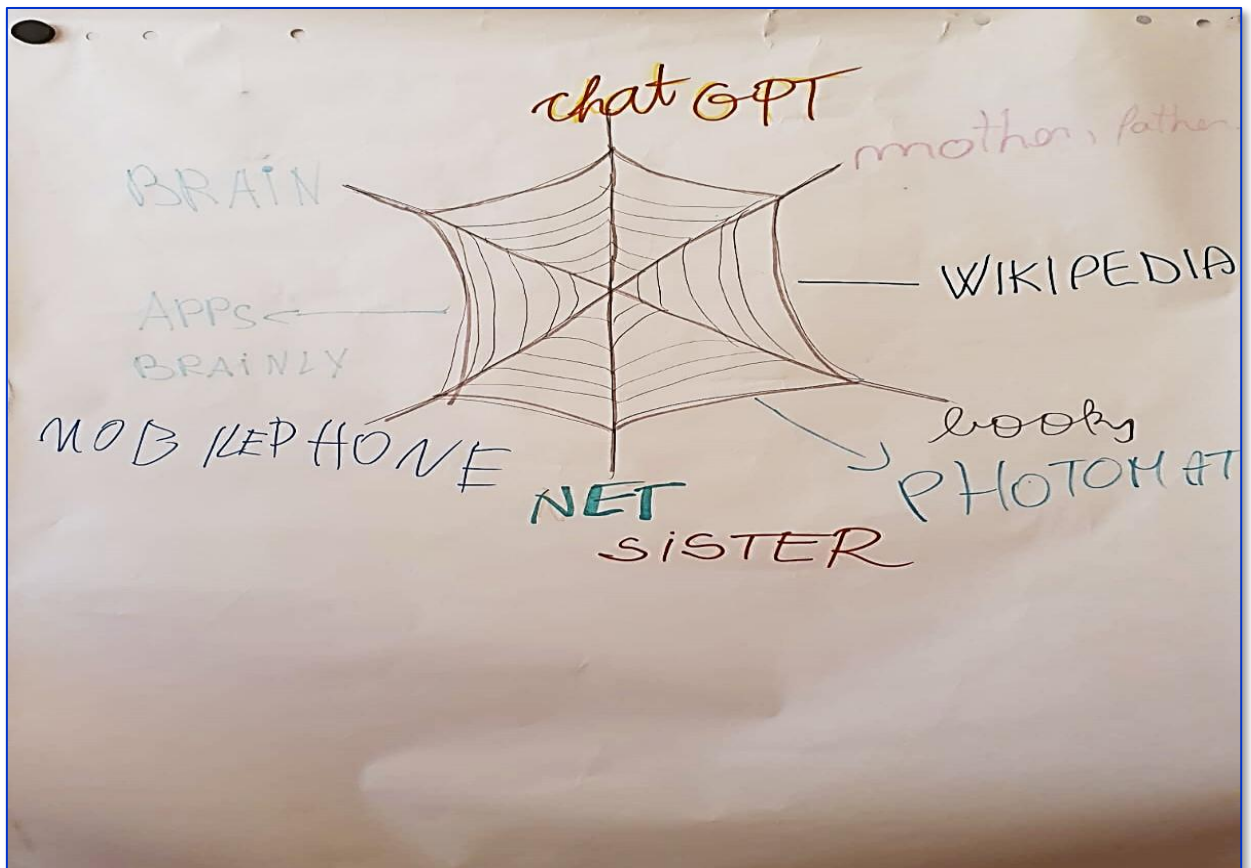 chat GPT
mother, father
BRAIN
WIKIPEDIA
APPs
BRAiNLY
books
MOBILEPHONE
PHOTOMAT
NET
SiSTER